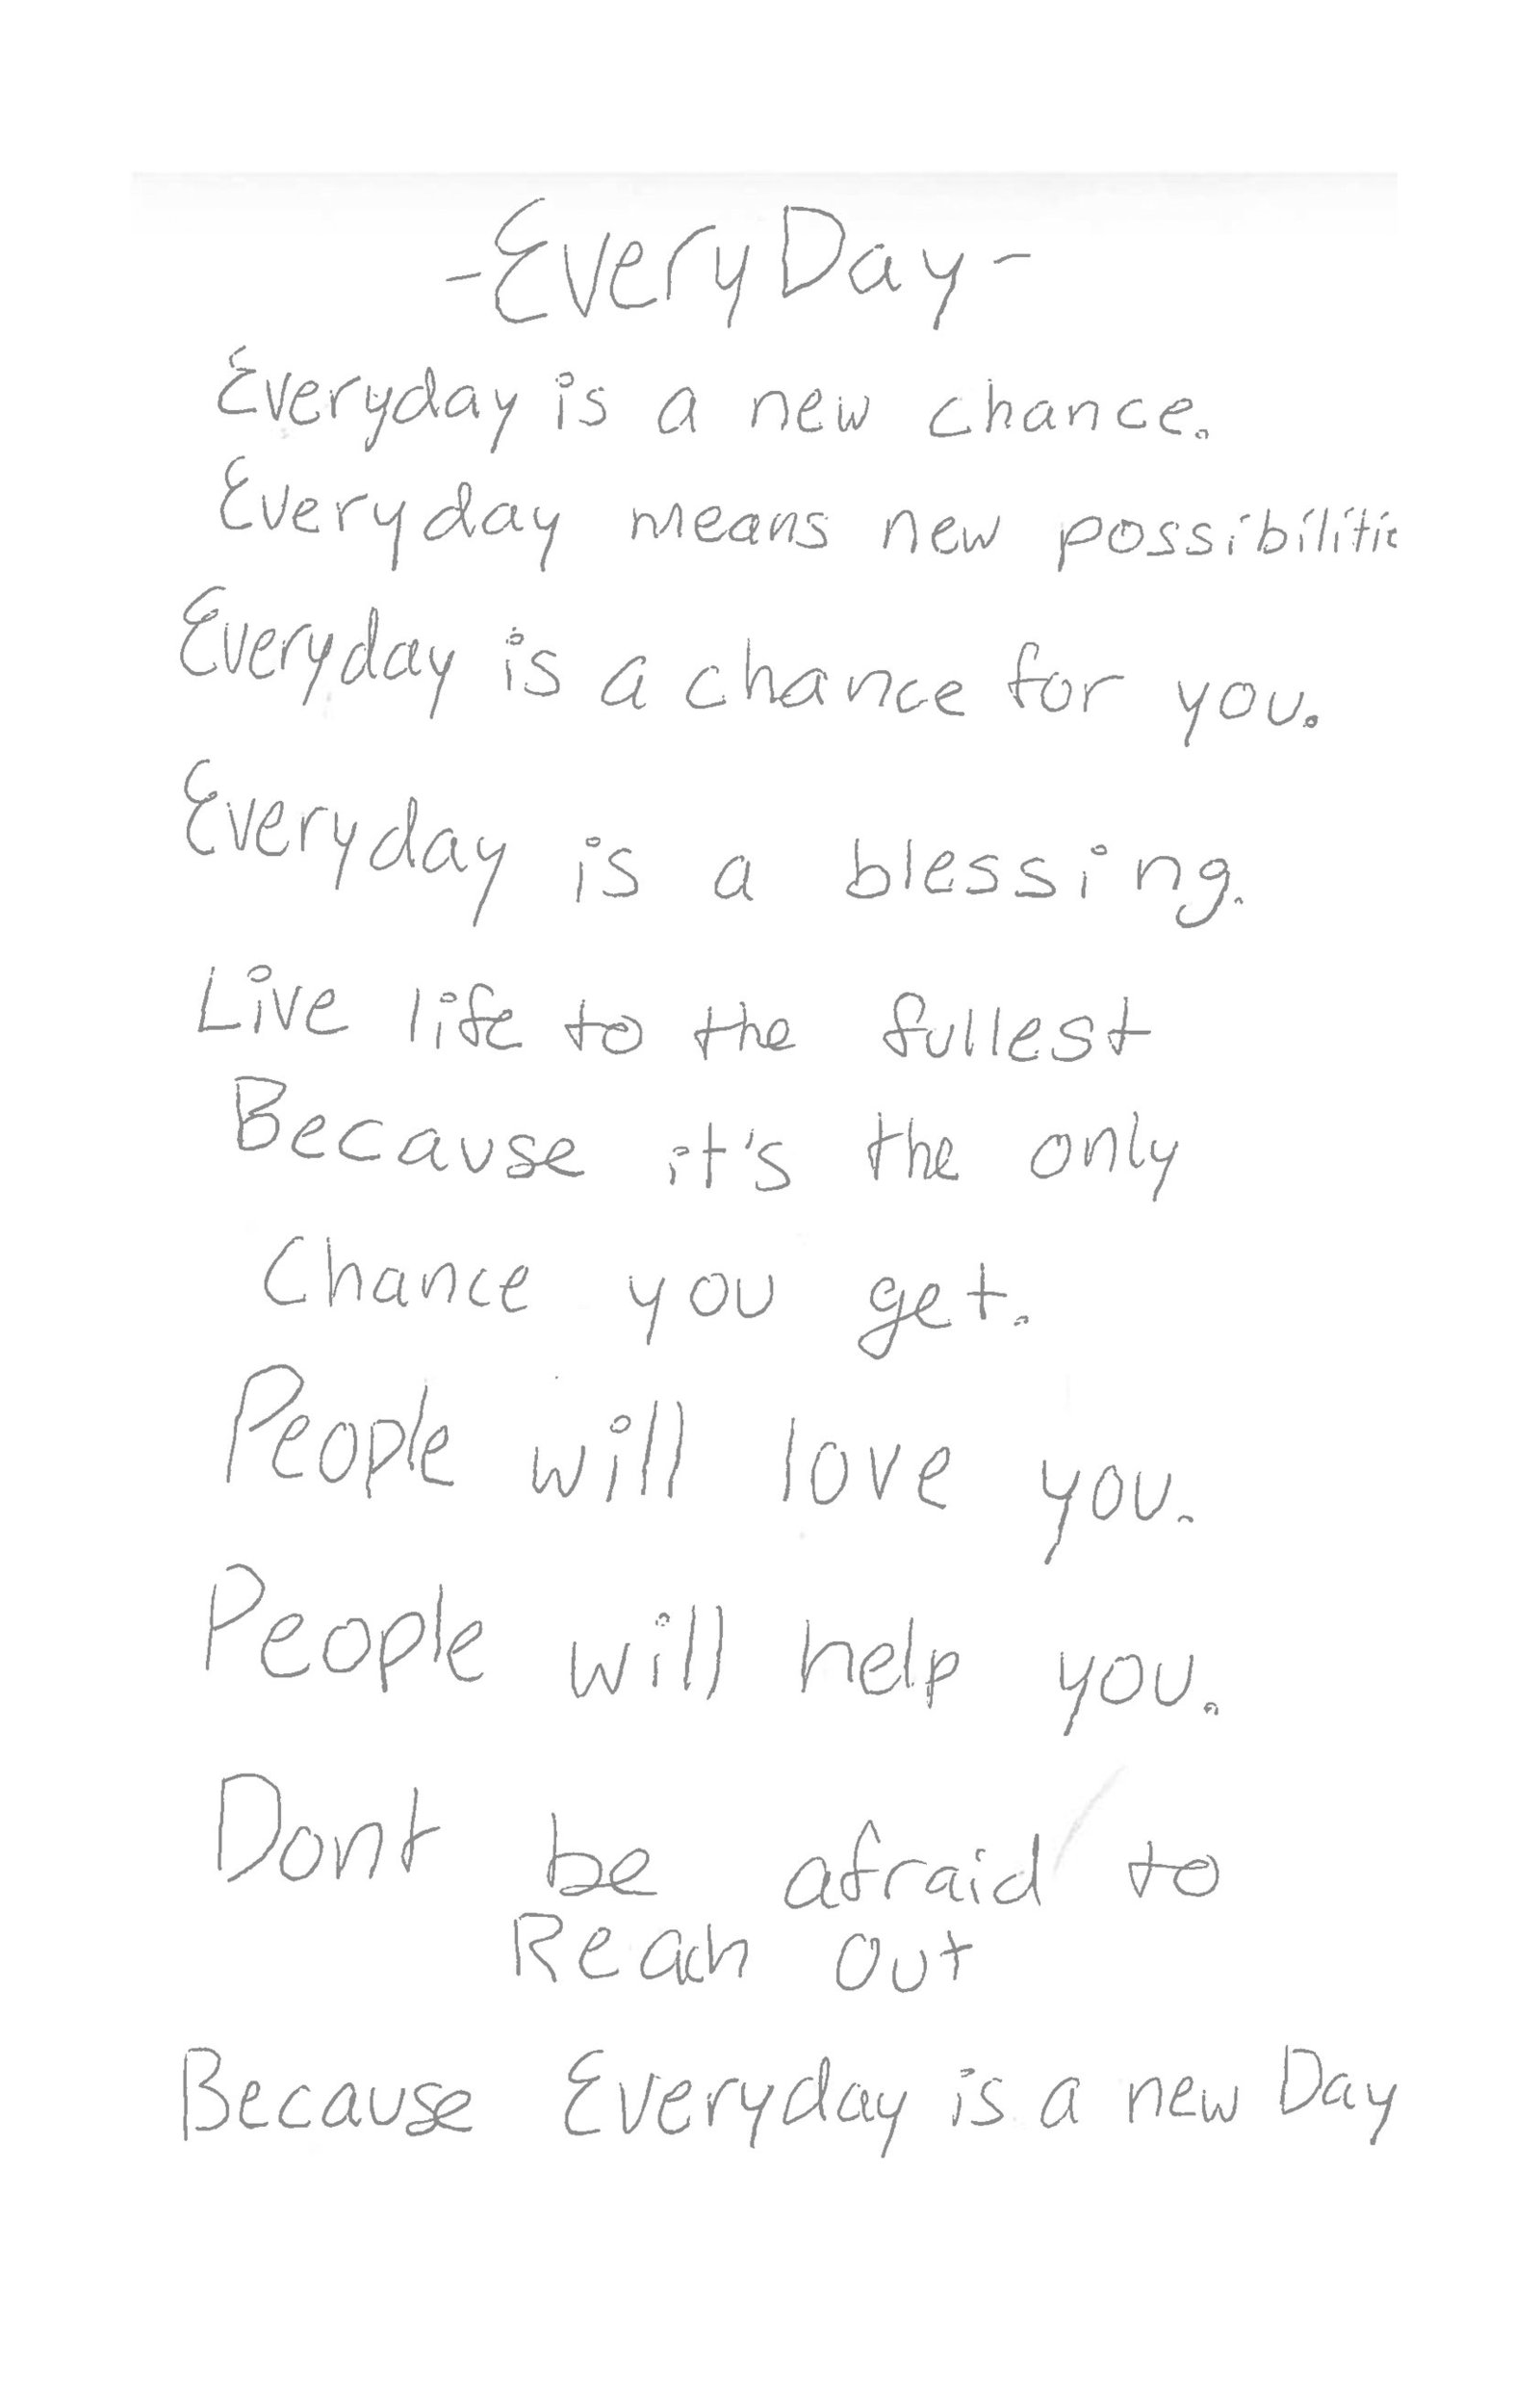 -EveryDay-
Everyday is a new chance.
Everyday means new possibilitie
Everyday is a chance for you.
Everyday is a blessing.
Live life to the fullest
Because it's the only
Chance you get.
People will love you.
People will help you.
Dont be afraid to
Reach Out
Because Everyday is a new Day